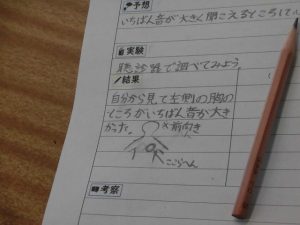 予想
いちばん音が大きく聞こえるところは
実験
聴診器で調べてみよう。
結果
自分から見て左側の胸の
ところがいちばん音が大き
かった。
※前向き
ここらへん
考察